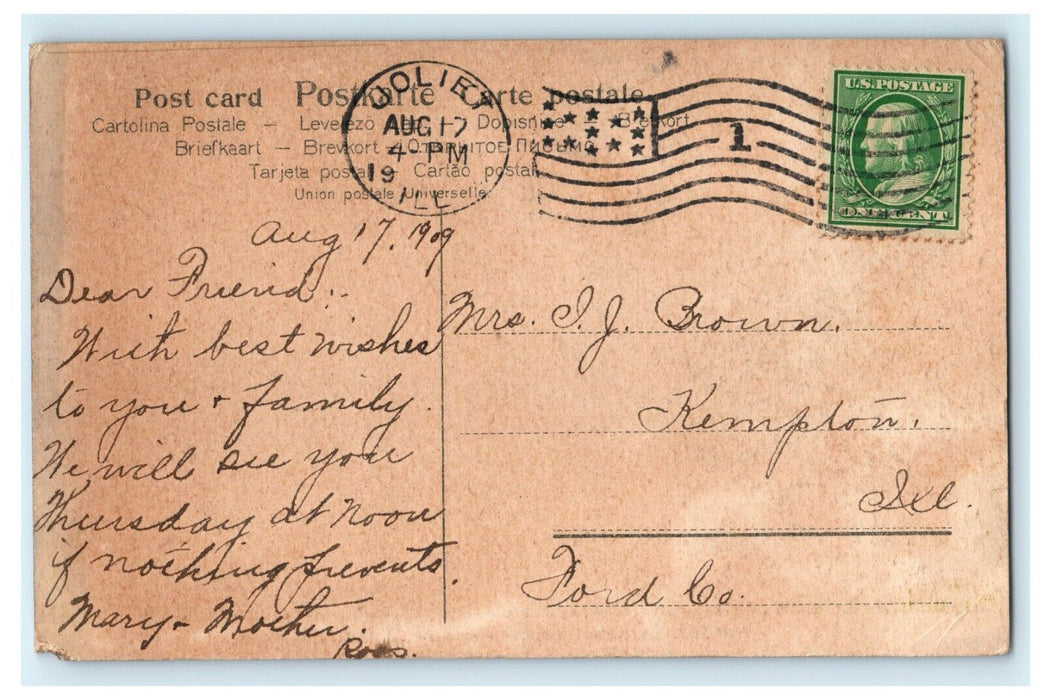 Post card Postkarte Carte postale
Cartolina Postale – Levelező – Dopisnice – Brevkort
Briefkaart – Brevkort – ОТКРЫТОЕ ПИСЬМО
Tarjeta postal – Cartão postal
Union postale Universelle
JOLIET
AUG 17
4-PM
19
ILL
1
U.S. POSTAGE
ONE CENT
Aug 17, 1909
Dear Friend:
With best wishes
to you + family.
We will see you
Thursday at noon
if nothing prevents.
Mary + Mother.
Mrs. I. J. Brown.
Kempton.
Ill.
Ford Co.